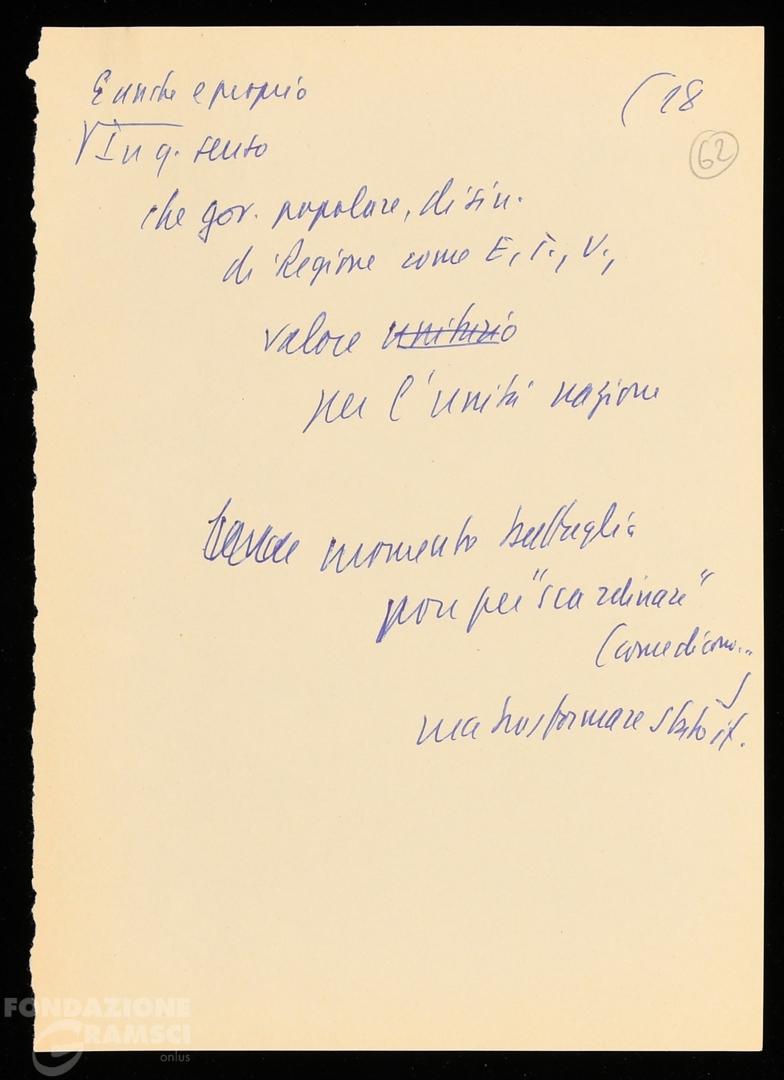 E anche e proprio
(18
62
In q. senso
che gov. popolare, di sin.
di Regione come E., T., V.,
valore unitario
per l'unità nazione
momento battaglia
non per "scardinare"
(come dicono...
ma trasformare Stato it.
FONDAZIONE
GRAMSCI
onlus